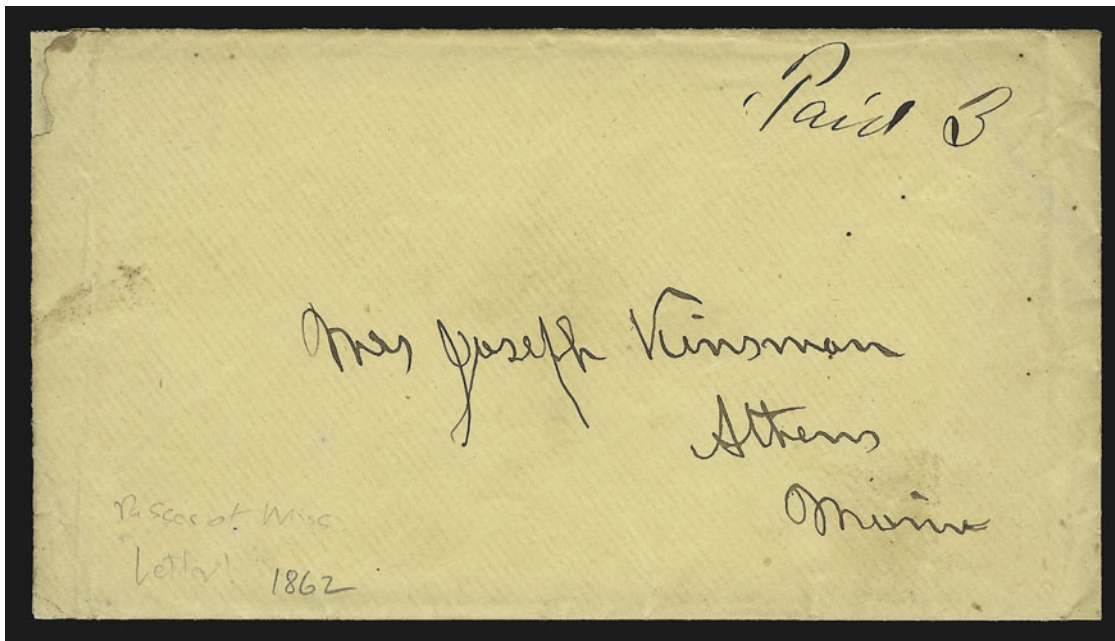 Paid 3
Mrs Joseph Kinsman
Athens
Maine
of Miss
Letter
1862